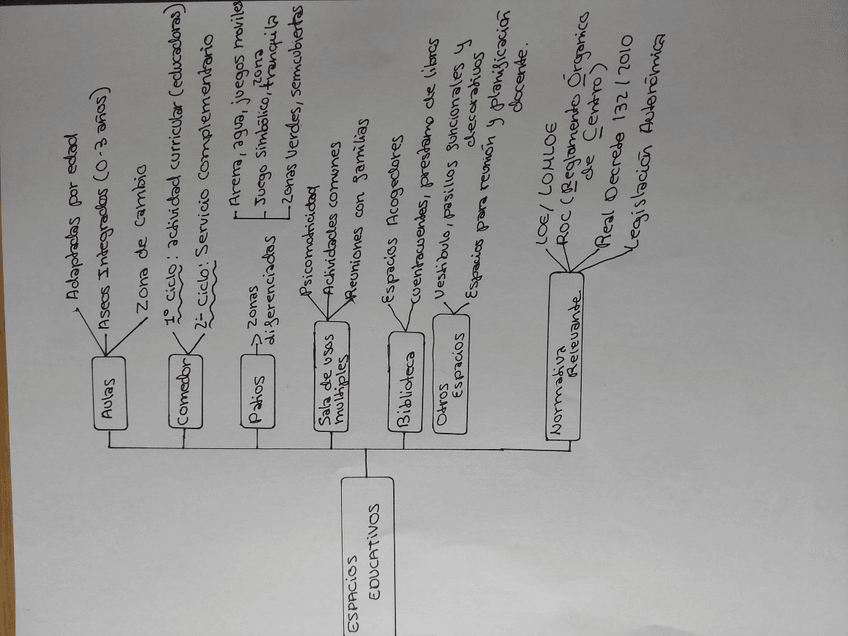 ESPACIOS
EDUCATIVOS
Aulas
Adaptadas por edad
Aseos Integrados (0-3 años)
Zona de Cambio
Comedor
1º Ciclo: actividad curricular (educadoras)
2º Ciclo: Servicio Complementario
Patios
Zonas
diferenciadas
Arena, agua, juegos moviles
Juego Simbólico, zona tranquila
Zonas Verdes, semicubiertas
Sala de usos
multiples
Psicomotricidad
Actividades comunes
Reuniones con familias
Biblioteca
Espacios Acogedores
Cuentacuentos, préstamo de libros
Otros
Espacios
Vestíbulo, pasillos funcionales y
decorativos
Espacios para reunión y planificación
docente.
Normativa
Relevante
LOE/LOMLOE
ROC (Reglamento Órganico
de Centro)
Real Decreto 132/2010
Legislación Autonómica